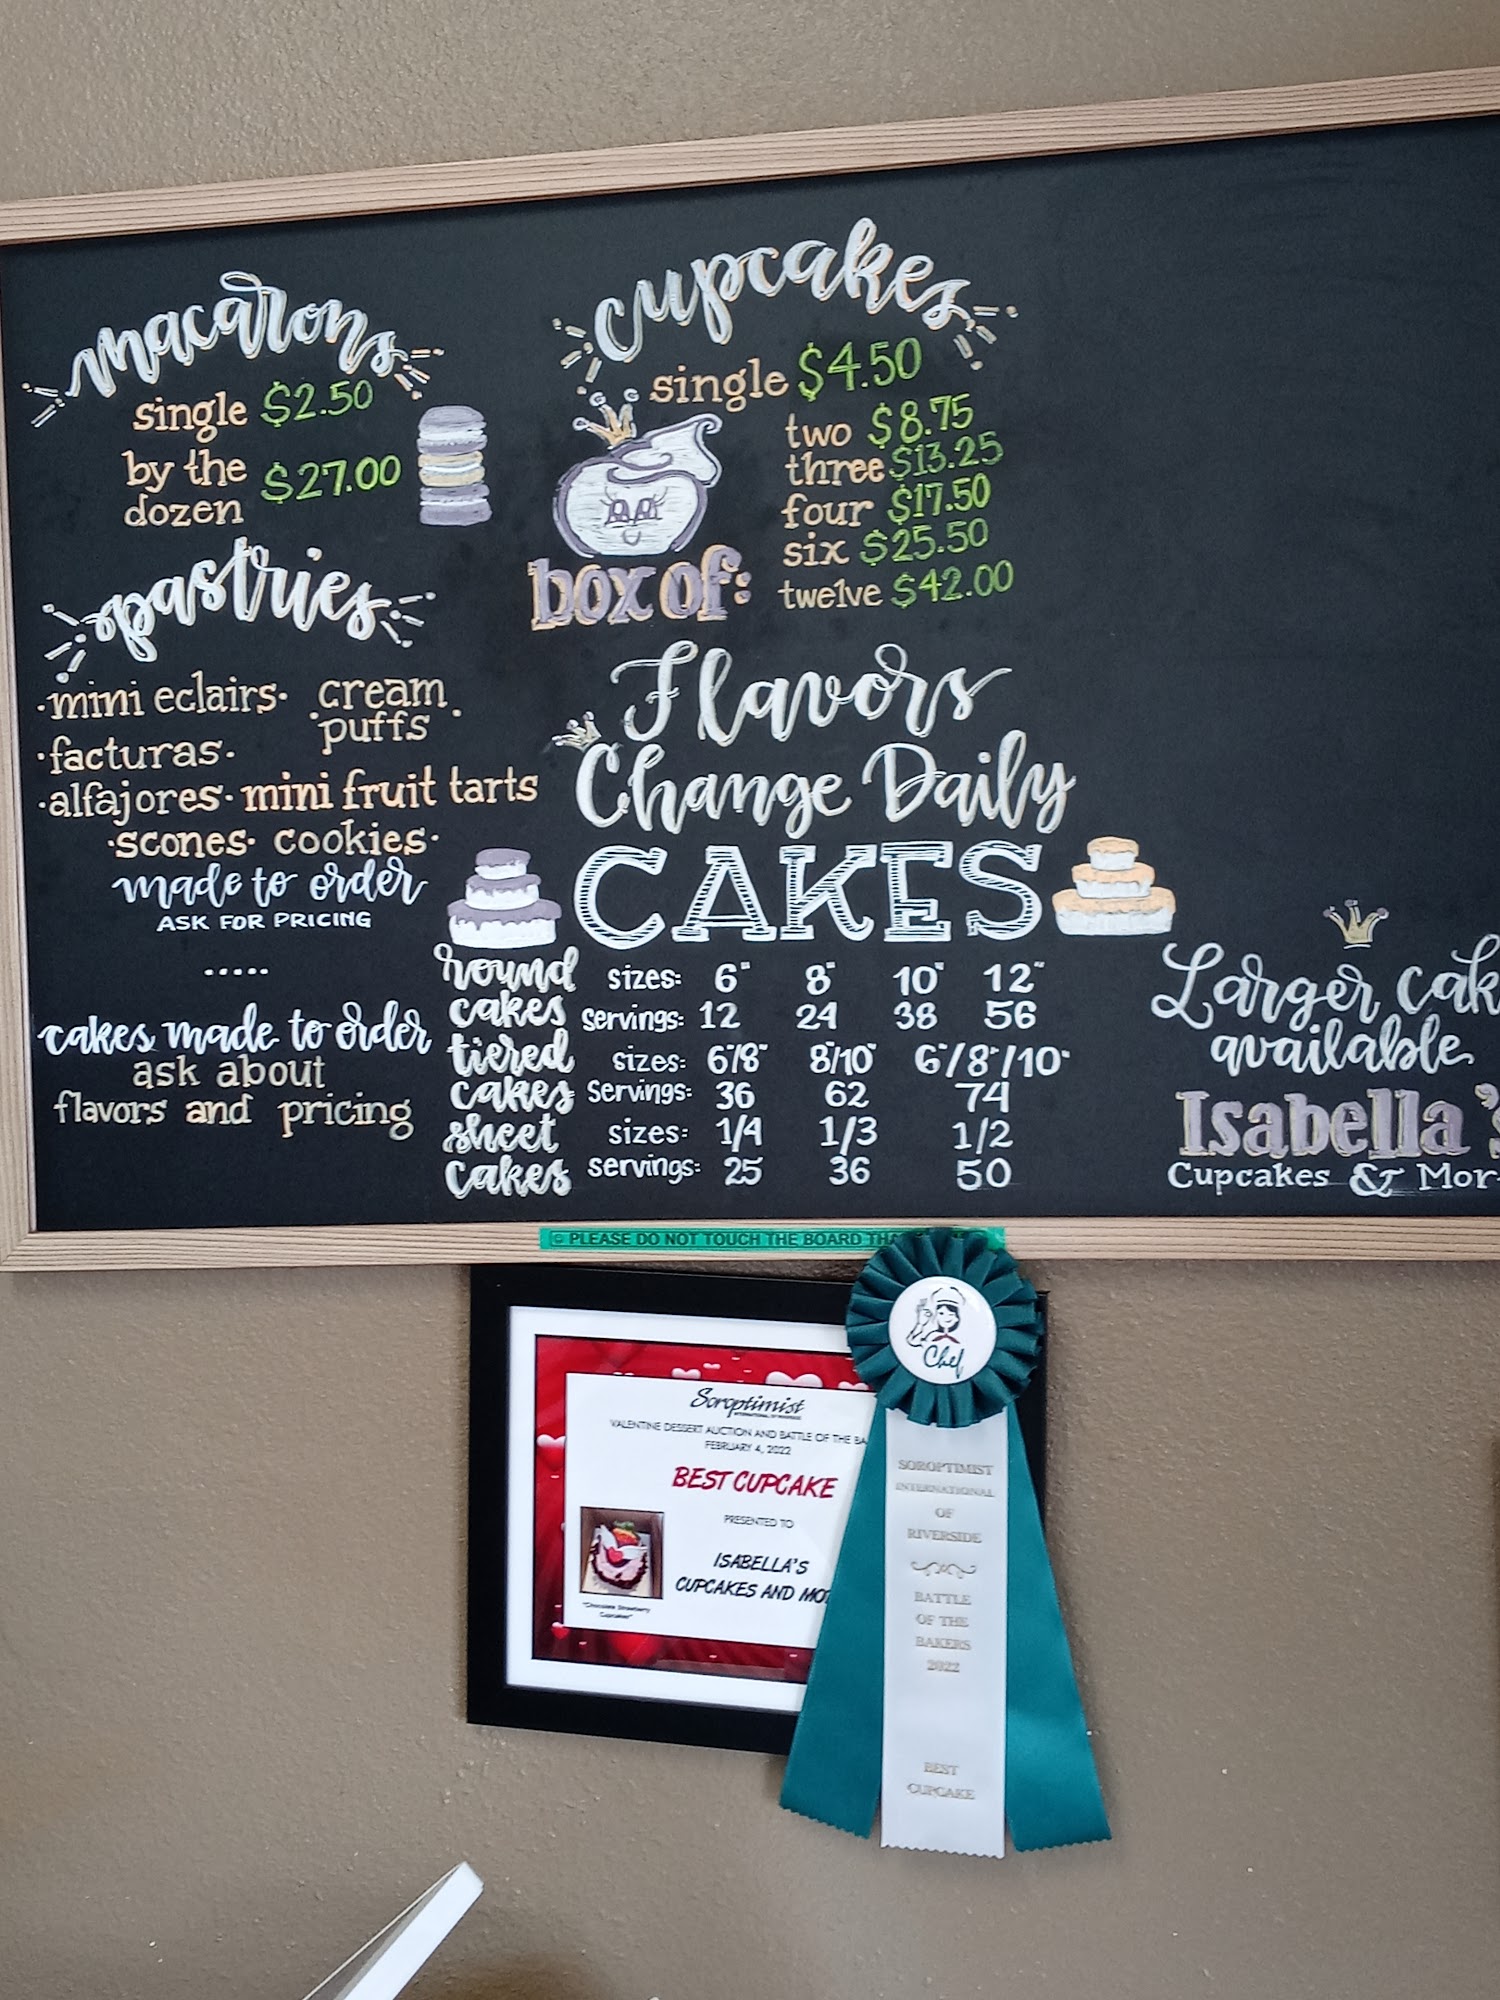 macarons
single $2.50
by the
dozen $27.00
pastries
·mini eclairs· cream
puffs·
·facturas·
·alfajores· mini fruit tarts
·scones· cookies·
made to order
ASK FOR PRICING
.....
cakes made to order
ask about
flavors and pricing
cupcakes
single $4.50
box of:
two $8.75
three $13.25
four $17.50
six $25.50
twelve $42.00
Flavors
Change Daily
CAKES
round
cakes
sizes: 6" 8" 10" 12"
servings: 12 24 38 56
tiered
cakes
sizes: 6"/8" 8"/10" 6"/8"/10"
Servings: 36 62 74
sheet
cakes
sizes: 1/4 1/3 1/2
servings: 25 36 50
Larger cak
available
Isabella's
Cupcakes & Mor
PLEASE DO NOT TOUCH THE BOARD THA
Soroptimist
VALENTINE DESSERT AUCTION AND BATTLE OF THE BA
FEBRUARY 4, 2022
BEST CUPCAKE
PRESENTED TO
ISABELLA'S
CUPCAKES AND MO
"Chocolate Strawberry
Cupcakes"
Chef
SOROPTIMIST
INTERNATIONAL
OF
RIVERSIDE
BATTLE
OF THE
BAKERS
2022
BEST
CUPCAKE